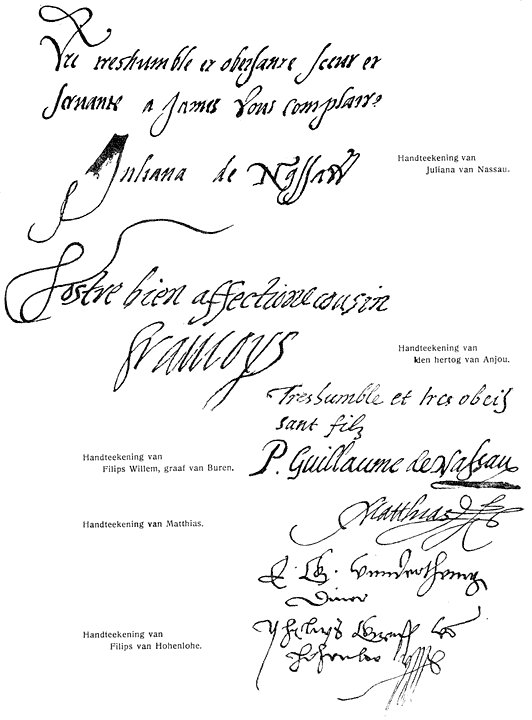 Vre treshumble et obeisante soeur et
servante a James vous complaire
Juliana de Nassau
Handteekening van
Juliana van Nassau.
Vostre bien affectione cousin
francoys
Handteekening van
den hertog van Anjou.
Treshumble et tres obeis
sant filz
P. Guillaume de Nassau
Handteekening van
Filips Willem, graaf van Buren.
Matthias
Handteekening van Matthias.
Diner
Philips Graff
Handteekening van
Filips van Hohenlohe.